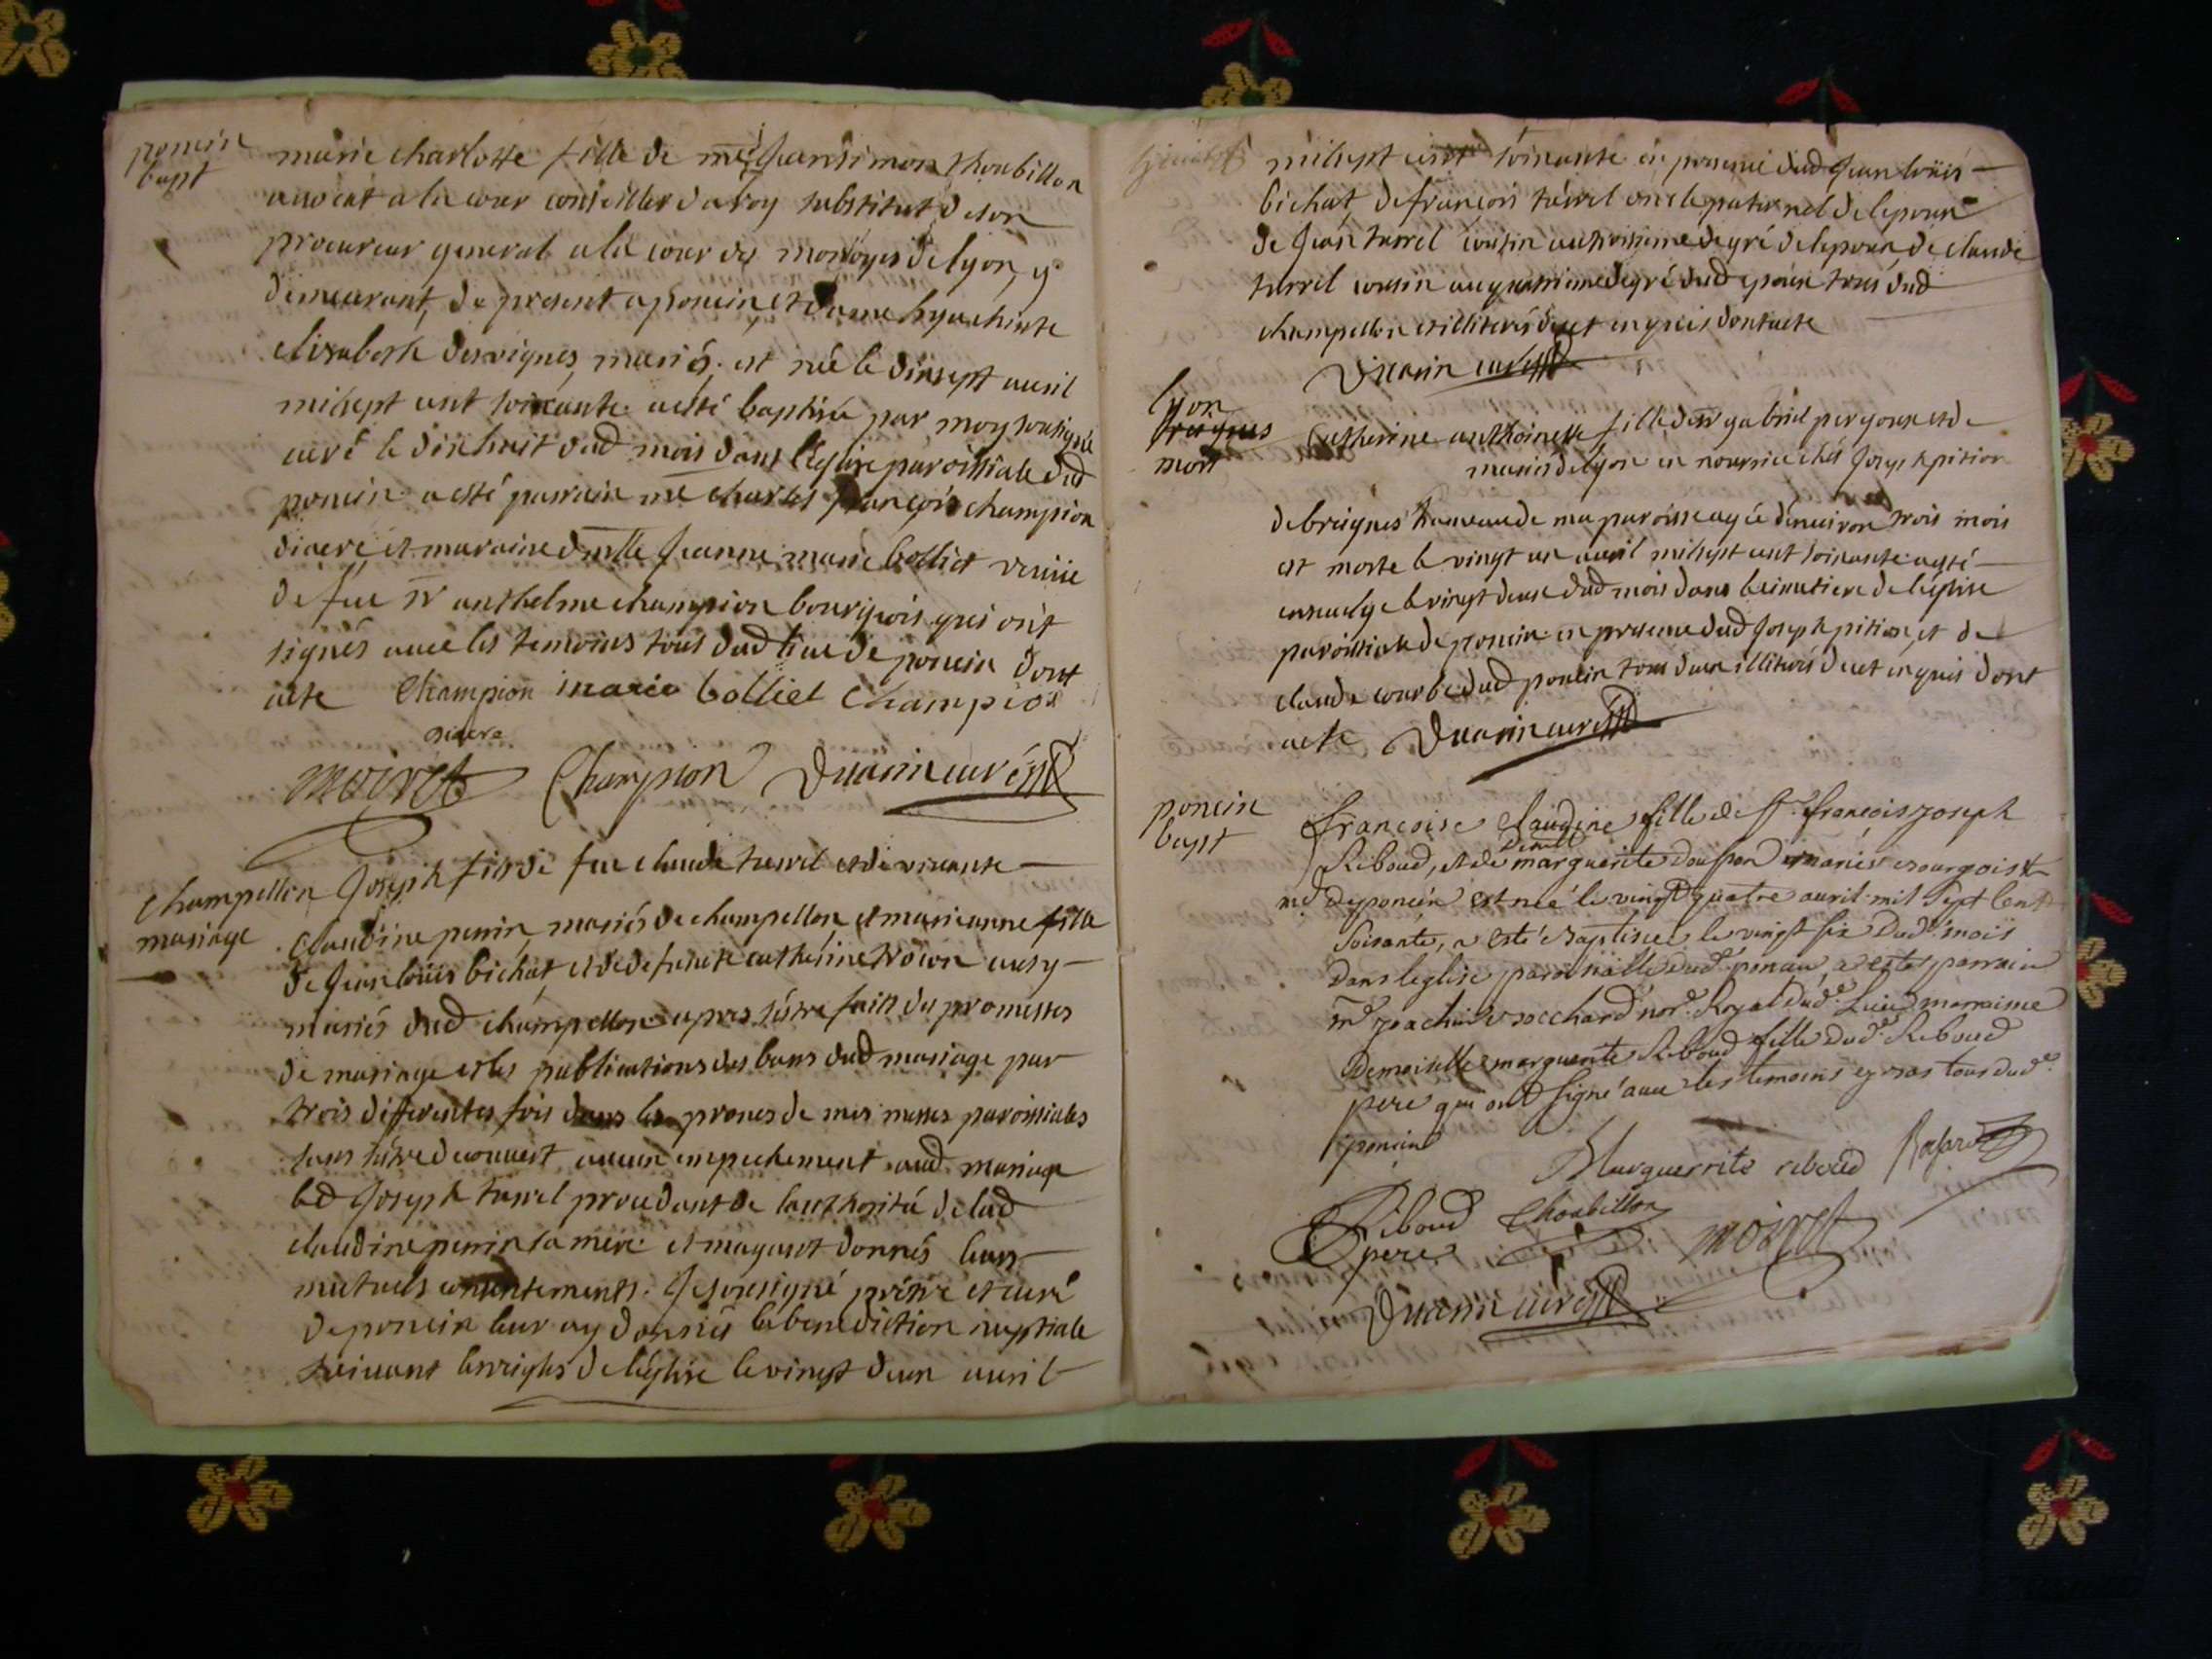 poncin
bapt
marie charlotte fille de me jean simon thoubillon
avocat a la cour conseiller du roy substitut de son
procureur general a la cour des monoyes de lyon, y
demeurant, de present a poncin, et dame hyachinte
elizabeth desvignes, mariés, est née le dixsept avril
milsept cent soixante a esté baptisée par moy soussigné
curé le dixhuit dud mois dans l'eglise paroissiale dud
poncin a esté parrain me charles françois champion
diacre et maraine dmlle jeanne marie bolliet veuve
de feu sr anthelme champion bourgeois qui ont
signés avec les temoins tous dud lieu de poncin dont
acte Champion marie bolliet champion
diacre
moiret Champion curé
champellon
mariage
joseph fils de feu claude turrel et de vivante
claudine perrin, mariés de champellon, et marieanne fille
de jean louis bichat, et de defuncte catherine aussy
mariés dud champellon apres s'éstre faits des promesses
de mariage et les publications des bans dud mariage par
trois differentes fois dans les prones de mes messes paroissiales
sans s'éstre decouvert aucun impechement aud mariage
led joseph turrel procedant de l'authorité de lad
claudine perrin sa mére et m'ayant donnés leurs
mutuels consentements. je soussigné prétre et curé
de poncin leur ay donnés la benediction nuptiale
suivant les reigles de l'église le vingt deux avril
milsept cent soixante en presence dud jean louis
bichat, de françois turrel oncle paternel de lepoux
de jean turrel cousin au troisieme degré de lepoux, de claude
turrel cousin au quatrieme degré dud epoux tous dud
champellon et illiterés de ce enquis dont acte
curé
lyon
breignes
mort
Catherine anthoinette fille de sr gabriel pergoux et de
mariés de lyon en nourrice chés joseph pition
de breignes hameau de ma paroisse agée d'environ trois mois
est morte le vingt un avril milsept cent soixante a esté
ensevelye le vingt deux dud mois dans le cimetiere de l'église
paroissiale de poncin en presence dud joseph pition, et de
claude courbe dud poncin tous deux illiterés de ce enquis dont
acte curé
poncin
bapt
françoise claudine fille de sr françois joseph
Reboud, et de demlle marguerite mariés bourgeois &
md de poncin est née le vingt quatre avril mil sept Cent
soixante, a esté baptisée le vingt six dud mois
dans leglise paroissialle dud poncin, a esté parrain
me joachin bocchard nore Royal dud Lieu, marraine
Demoiselle marguerite Reboud fille dud Reboud
pere qui ont signé avec les temoins tous dud
poncin
Marguerrite reboud
Reboud Thoubillon moiret
pere
curé